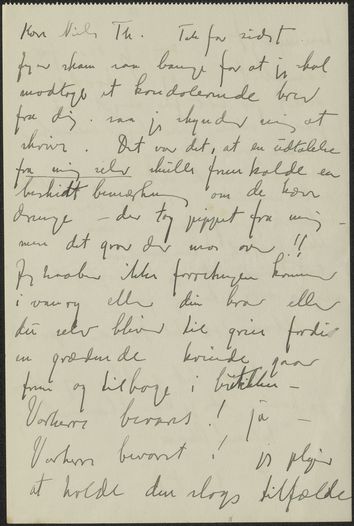 Kære Niels Th. Tak for sidst.
Jeg er skam saa bange for at jeg skal
modtage et kondolerende brev
fra dig. saa jeg skynder mig at
skrive. Det var det, at en udtalelse
fra mig selv skulle fremkalde en
beskidt bemærkning om de kære
drenge – der tog pippet fra mig –
men det graa der mos over !!
Jeg haaber ikke forretningen kommer
i vanry eller din bror eller
du selv bliver til grin fordi
en grædende kvinde gaar
frem og tilbage i butikken –
Vorherre bevares! ja –
Vorherre bevares! jeg plejer
at holde den slags tilfælde